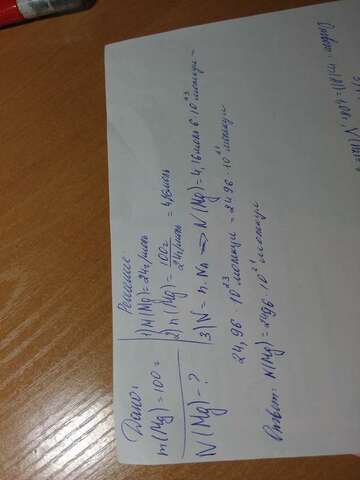 Дано:
m(Mg)=100г
N(Mg)-?
Решение
1) M(Mg)=24г/моль
2) n(Mg)= 100г / 24г/моль = 4,16моль
3) N=n·Na → N(Mg)=4,16моль·6·10²³ молекул=
24,96·10²³ молекул = 2496·10²¹ молекул
Ответ: N(Mg)=2496·10²¹ молекул